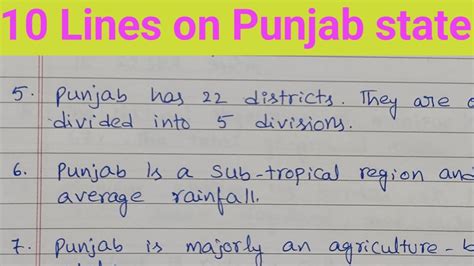 10 Lines on Punjab state
5. Punjab has 22 districts. They are
divided into 5 divisions.
6. Punjab is a sub-tropical region and
average rainfall.
7. Punjab is majorly an agriculture-